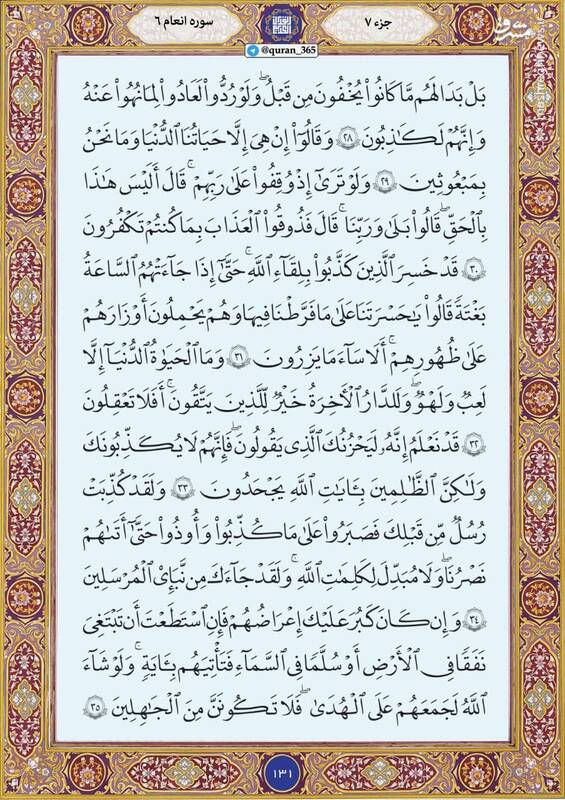 جزء ۷
سوره انعام ۶
@quran_365
مشرق
بَلْ بَدَا لَهُم مَّا كَانُوا۟ يُخْفُونَ مِن قَبْلُ ۖ وَلَوْ رُدُّوا۟ لَعَادُوا۟ لِمَا نُهُوا۟ عَنْهُ
وَإِنَّهُمْ لَكَـٰذِبُونَ ۝٢٨ وَقَالُوٓا۟ إِنْ هِىَ إِلَّا حَيَاتُنَا ٱلدُّنْيَا وَمَا نَحْنُ
بِمَبْعُوثِينَ ۝٢٩ وَلَوْ تَرَىٰٓ إِذْ وُقِفُوا۟ عَلَىٰ رَبِّهِمْ ۚ قَالَ أَلَيْسَ هَـٰذَا
بِٱلْحَقِّ ۖ قَالُوا۟ بَلَىٰ وَرَبِّنَا ۚ قَالَ فَذُوقُوا۟ ٱلْعَذَابَ بِمَا كُنتُمْ تَكْفُرُونَ
۝٣٠ قَدْ خَسِرَ ٱلَّذِينَ كَذَّبُوا۟ بِلِقَآءِ ٱللَّهِ ۖ حَتَّىٰٓ إِذَا جَآءَتْهُمُ ٱلسَّاعَةُ
بَغْتَةً قَالُوا۟ يَـٰحَسْرَتَنَا عَلَىٰ مَا فَرَّطْنَا فِيهَا وَهُمْ يَحْمِلُونَ أَوْزَارَهُمْ
عَلَىٰ ظُهُورِهِمْ ۚ أَلَا سَآءَ مَا يَزِرُونَ ۝٣١ وَمَا ٱلْحَيَوٰةُ ٱلدُّنْيَآ إِلَّا
لَعِبٌ وَلَهْوٌ ۖ وَلَلدَّارُ ٱلْـَٔاخِرَةُ خَيْرٌ لِّلَّذِينَ يَتَّقُونَ ۗ أَفَلَا تَعْقِلُونَ
۝٣٢ قَدْ نَعْلَمُ إِنَّهُۥ لَيَحْزُنُكَ ٱلَّذِى يَقُولُونَ ۖ فَإِنَّهُمْ لَا يُكَذِّبُونَكَ
وَلَـٰكِنَّ ٱلظَّـٰلِمِينَ بِـَٔايَـٰتِ ٱللَّهِ يَجْحَدُونَ ۝٣٣ وَلَقَدْ كُذِّبَتْ
رُسُلٌ مِّن قَبْلِكَ فَصَبَرُوا۟ عَلَىٰ مَا كُذِّبُوا۟ وَأُوذُوا۟ حَتَّىٰٓ أَتَىٰهُمْ
نَصْرُنَا ۚ وَلَا مُبَدِّلَ لِكَلِمَـٰتِ ٱللَّهِ ۚ وَلَقَدْ جَآءَكَ مِن نَّبَإِى۟ ٱلْمُرْسَلِينَ
۝٣٤ وَإِن كَانَ كَبُرَ عَلَيْكَ إِعْرَاضُهُمْ فَإِنِ ٱسْتَطَعْتَ أَن تَبْتَغِىَ
نَفَقًا فِى ٱلْأَرْضِ أَوْ سُلَّمًا فِى ٱلسَّمَآءِ فَتَأْتِيَهُم بِـَٔايَةٍ ۚ وَلَوْ شَآءَ
ٱللَّهُ لَجَمَعَهُمْ عَلَى ٱلْهُدَىٰ ۚ فَلَا تَكُونَنَّ مِنَ ٱلْجَـٰهِلِينَ ۝٣٥
۱۳۱